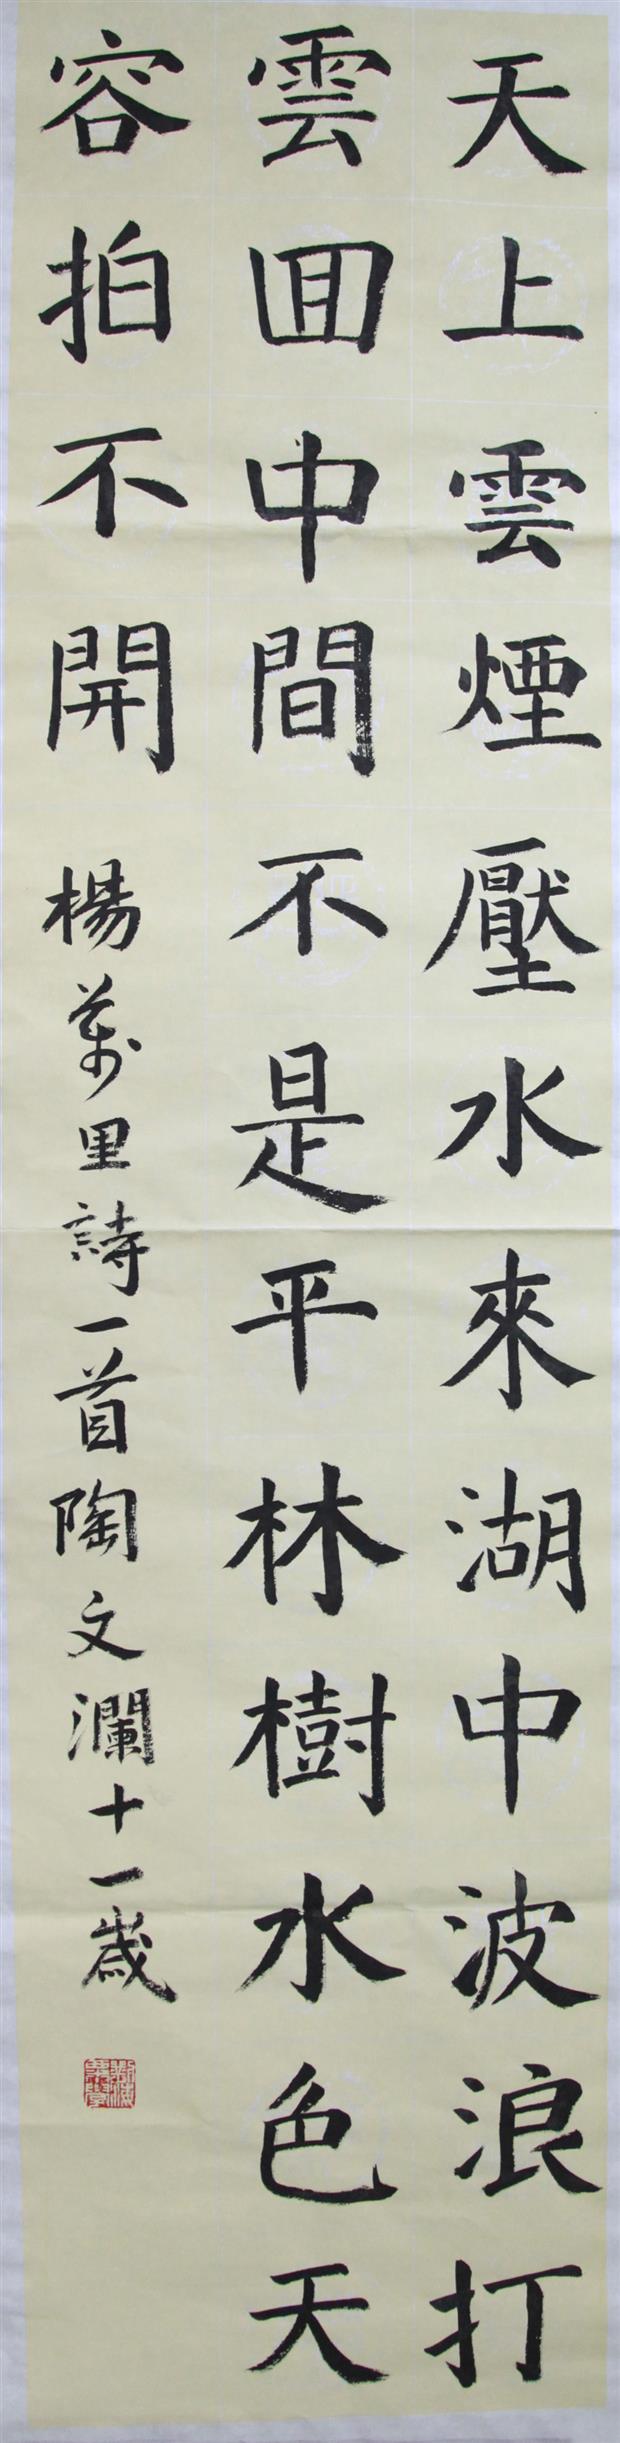 天上雲煙壓水來湖中波浪打
雲囬中間不是平林樹水色天
容拍不開
楊萬里詩一首陶文瀾十一歲